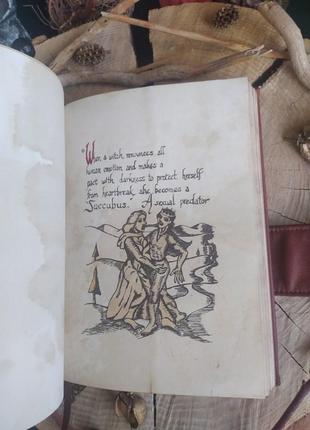 "When a witch renounces all
human emotion and makes a
pact with darkness to protect herself
from heartbreak, she becomes a
Succubus." A sexual predator